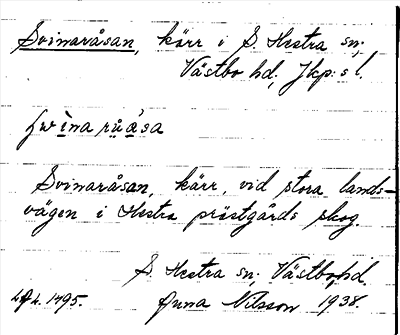 Svinaråsan, kärr i S. Hestra sn.,
Västbo hd, Jkp:s l.
Svinaråsan, kärr, vid stora lands-
vägen i Hestra prästgårds skog.
S. Hestra sn. Västbo hd.
1495. Anna Nilsson 1938.